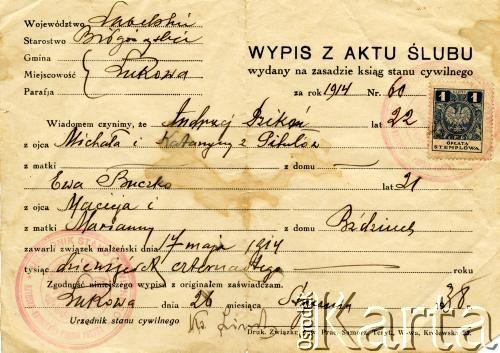 Województwo Lubelskie
Starostwo Biłgorajskie
Gmina
Miejscowość Łukowa
Parafja
WYPIS Z AKTU ŚLUBU
wydany na zasadzie ksiąg stanu cywilnego
za rok 1914 Nr. 60
Wiadomem czynimy, że Andrzej lat 22
z ojca Michała i Katarzyny z
z matki z domu
Ewa Buczko lat 21
z ojca Macieja i
z matki Marianny z domu
zawarli związek małżeński dnia 17 maja 1914
tysiąc dziewięćset czternastego roku
Zgodność niniejszego wypisu z oryginałem zaświadczam.
Łukowa dnia 26 miesiąca 1938 r.
Urzędnik stanu cywilnego
Druk. Związk. Prac. Samorz. Teryt., W-wa, Królewska
1 1
OPŁATA
STEMPLOWA
fotopolska
© Karta